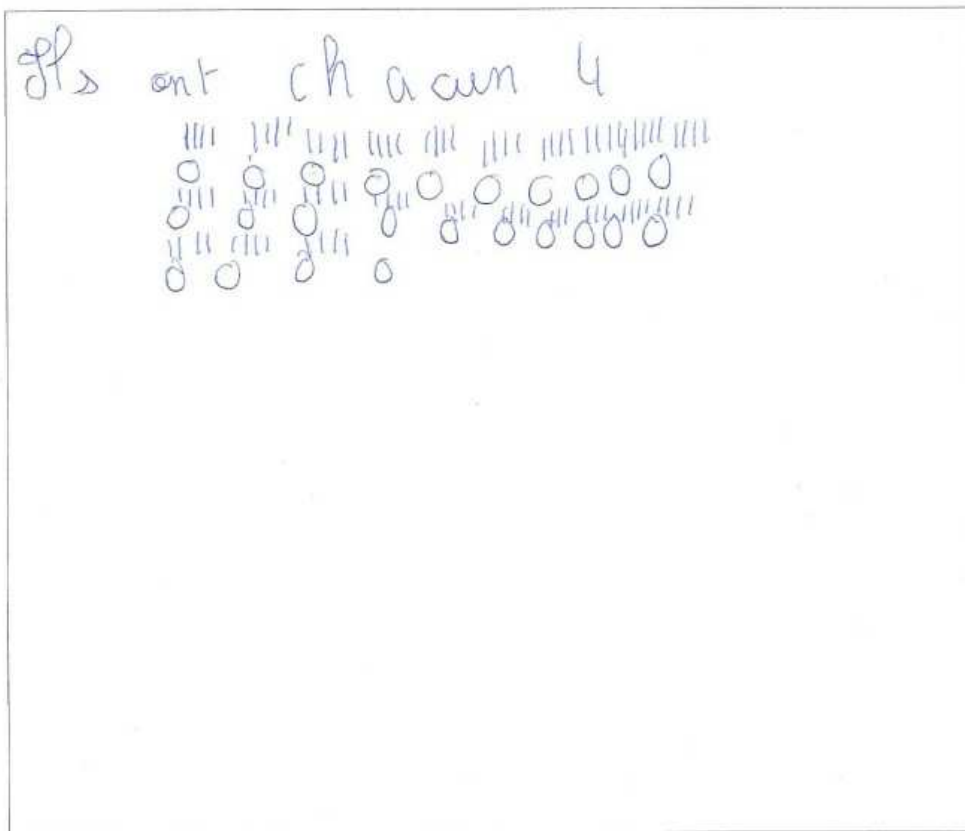 Ils ont chacun 4